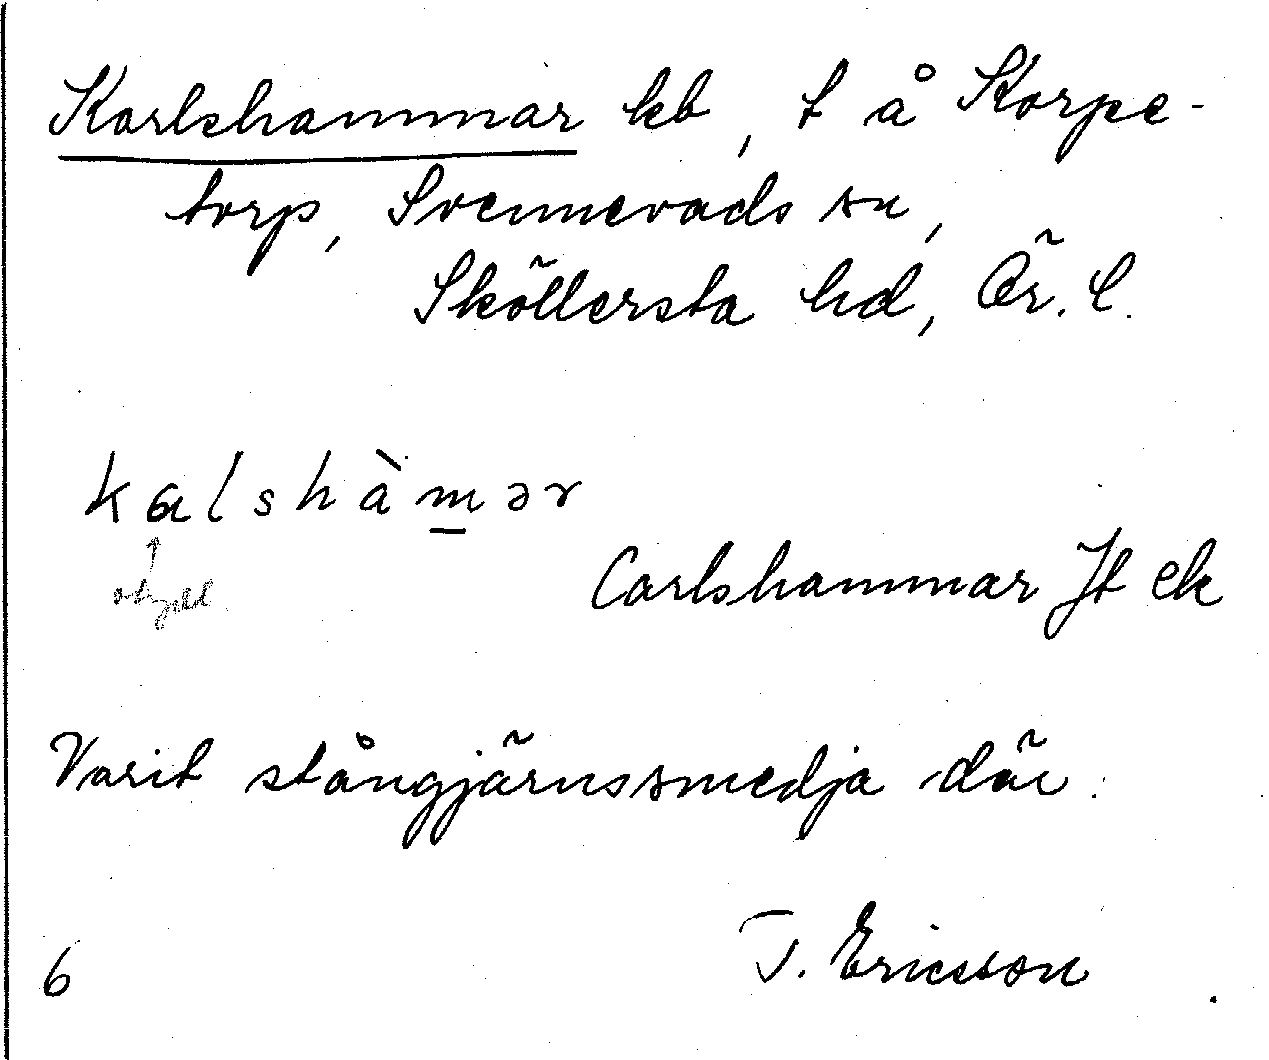 Karlshammar hb, t å Korpe-
torp, Svennevads sn,
Sköllersta hd, Ör. l.
kalshàmər
Carlshammar Jt ek
Varit stångjärnssmedja där.
T. Ericsson
6